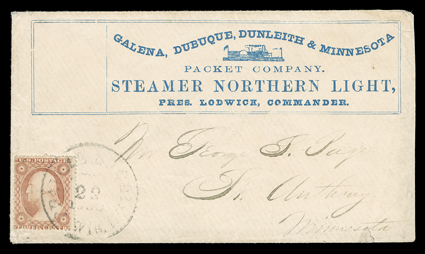 GALENA, DUBUQUE, DUNLEITH & MINNESOTA
PACKET COMPANY.
STEAMER NORTHERN LIGHT,
PRES. LODWICH, COMMANDER.
U.S. POSTAGE
THREE CENTS
22
WIS.
Geo. J. Page
St. Anthony
Minnesota